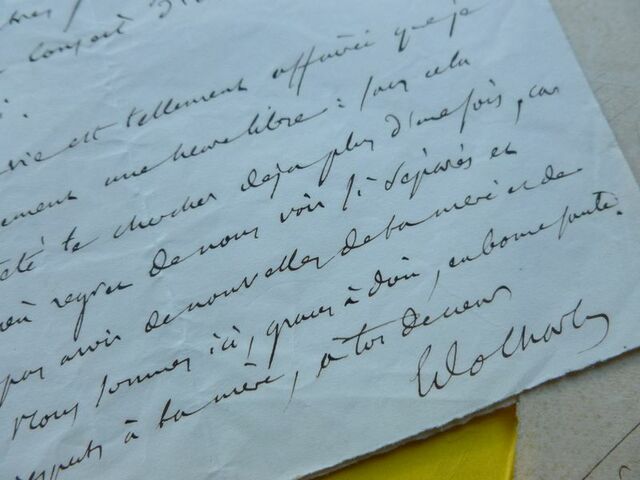 confort d'
vie est tellement affairée que je
ement une heure libre : sans cela
été te chercher déjà plus d'une fois, car
regret de nous voir si séparés et
pas avoir de nouvelles de ta mère et de
Nous sommes ici, graces à dieu, en bonne santé.
respects à ta mère, à toi de coeur